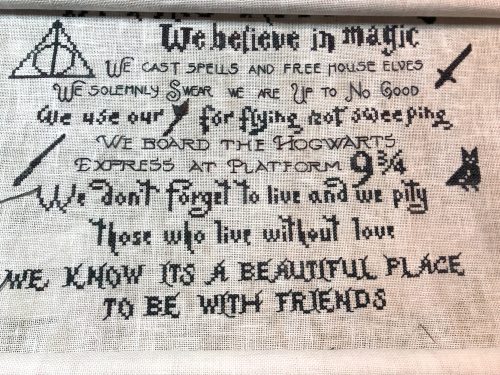 We believe in magic
WE CAST SPELLS AND FREE HOUSE ELVES
WE SOLEMNLY SWEAR WE ARE UP TO NO GOOD
We use our for flying not sweeping
WE BOARD THE HOGWARTS
EXPRESS AT PLATFORM 9 3/4
We don't forget to live and we pity
those who live without love
WE KNOW ITS A BEAUTIFUL PLACE
TO BE WITH FRIENDS